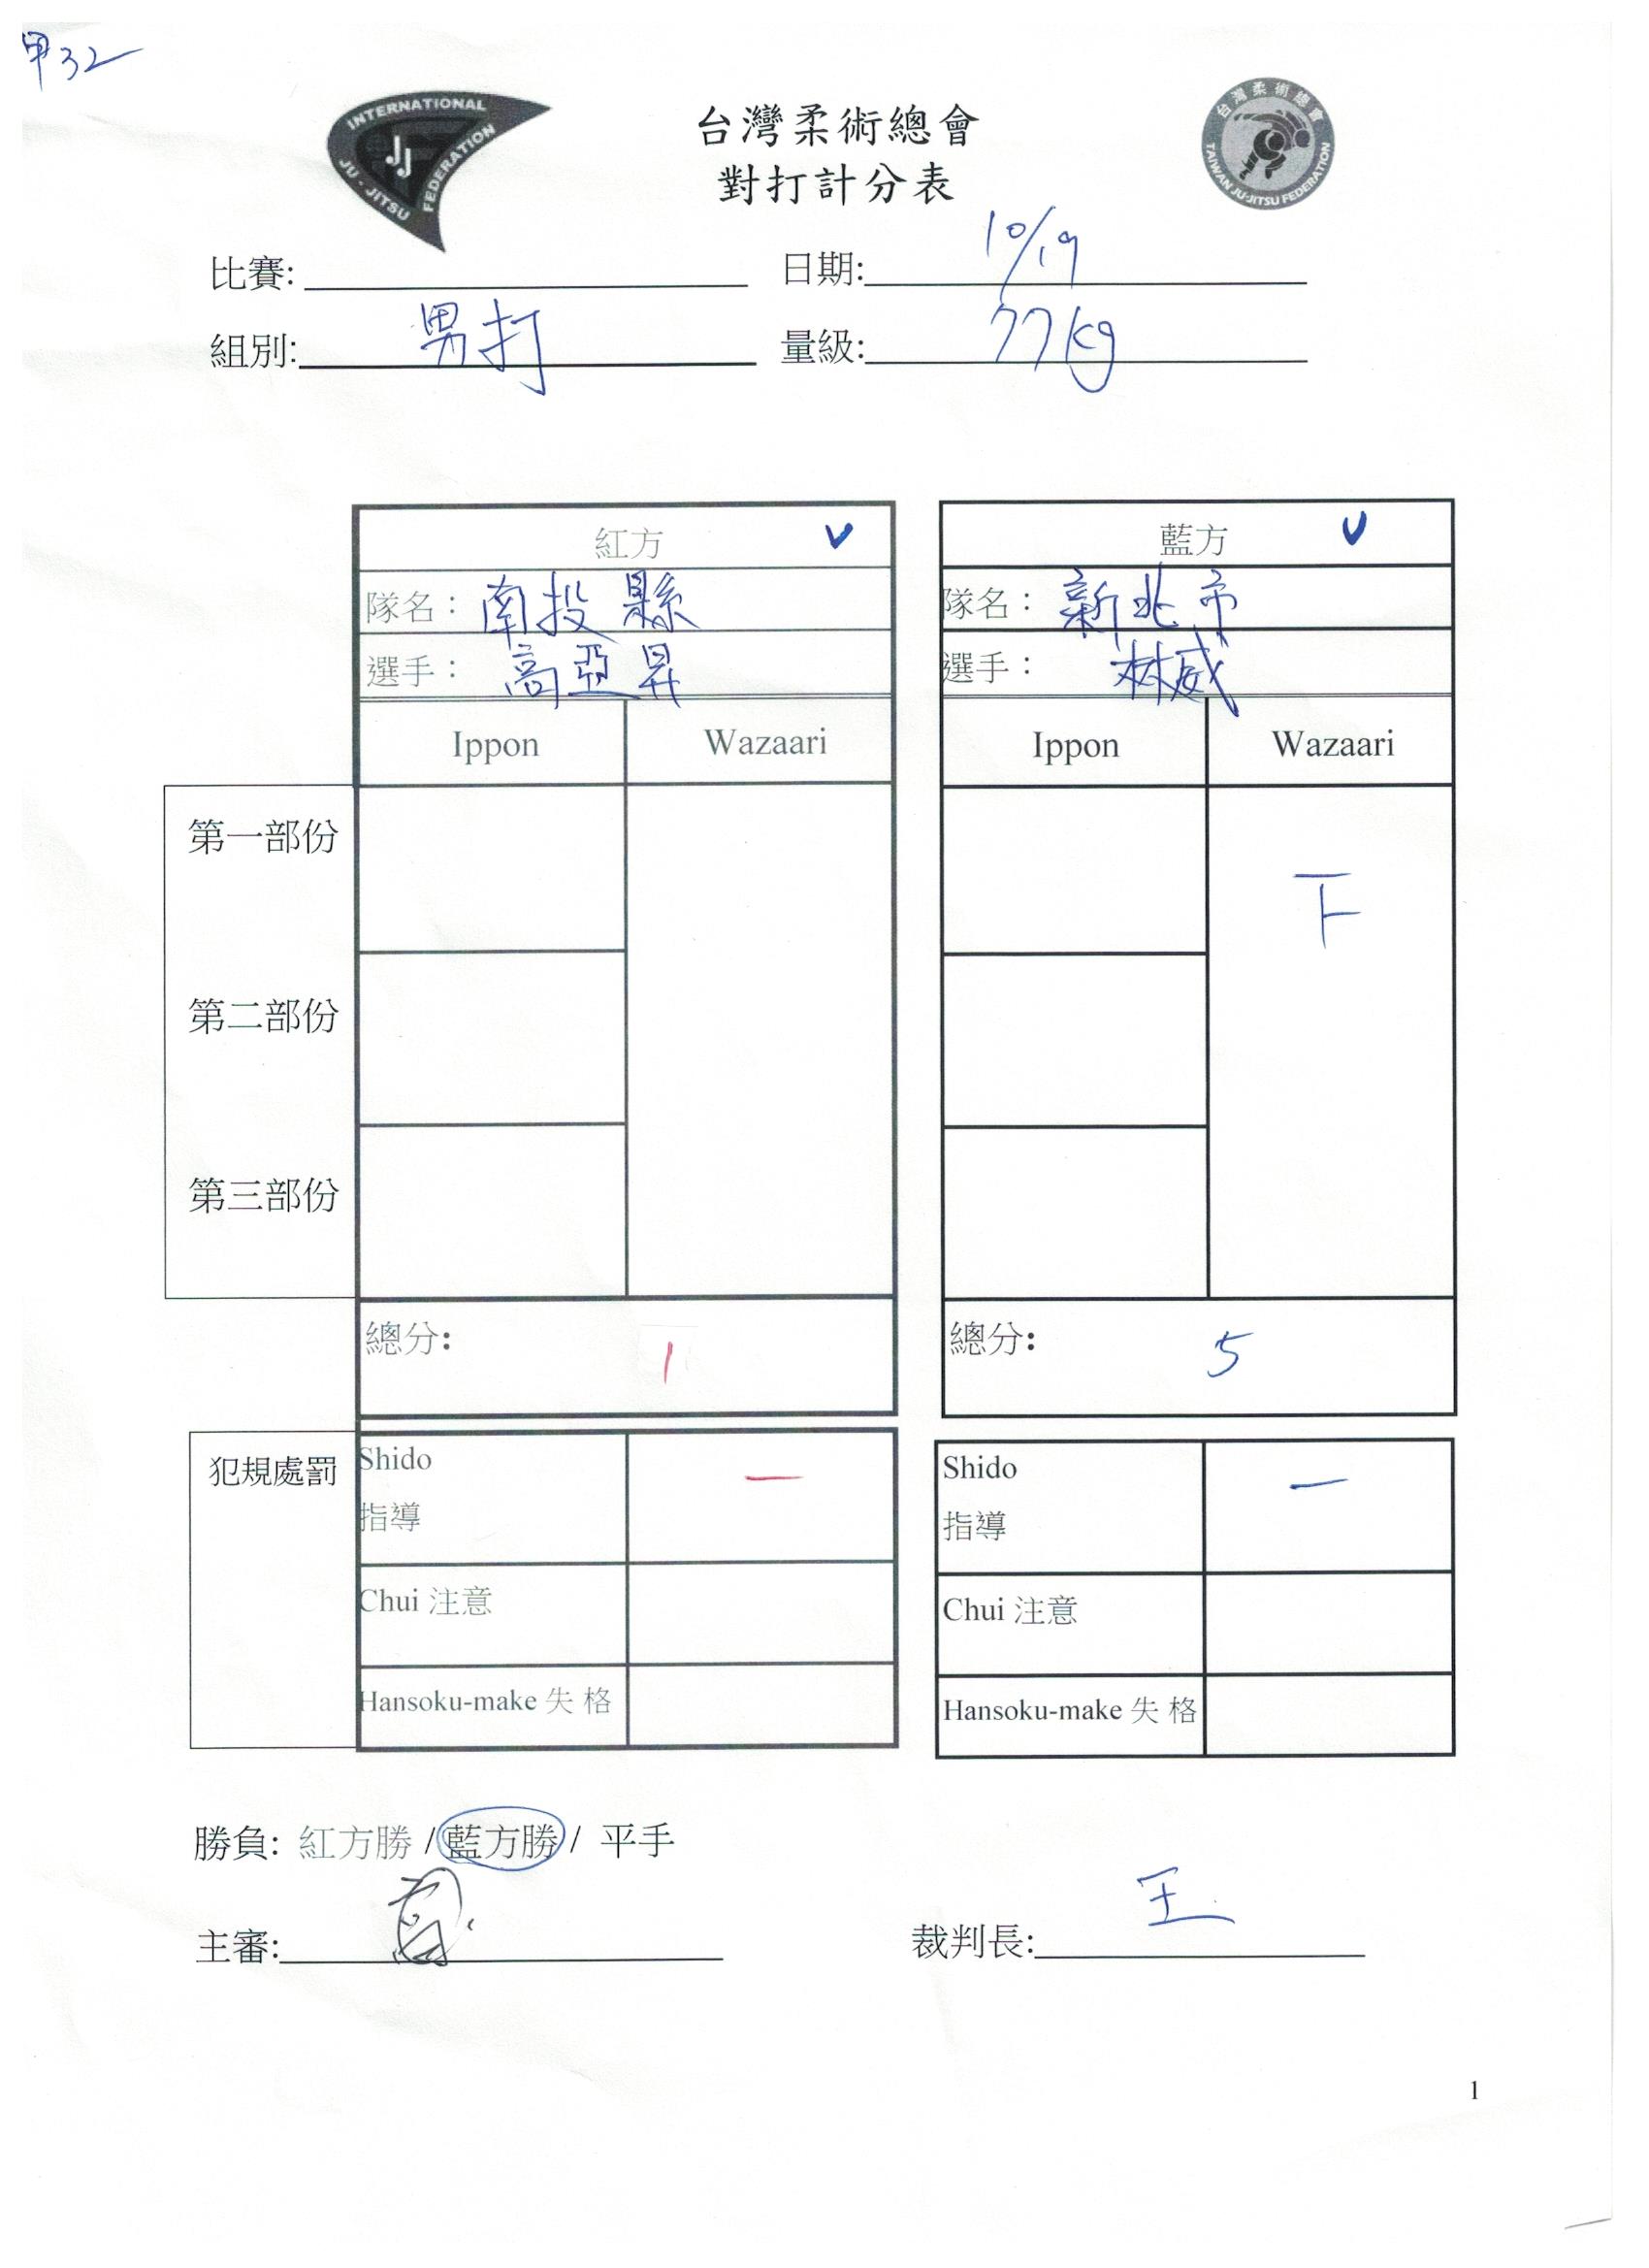 甲32
INTERNATIONAL
JU-JITSU FEDERATION
JJ
台灣柔術總會
對打計分表
台灣柔術總會
TAIWAN JU-JITSU FEDERATION
比賽: 日期: 10/19
組別: 男打 量級: 77kg
紅方 V 藍方 V
隊名： 南投縣 隊名： 新北市
選手： 高亞昇 選手： 林威
Ippon Wazaari Ippon Wazaari
第一部份
下
第二部份
第三部份
總分: 1 總分: 5
犯規處罰 Shido 一 Shido 一
指導 指導
Chui 注意 Chui 注意
Hansoku-make 失 格 Hansoku-make 失 格
勝負: 紅方勝 / 藍方勝 / 平手
主審: 裁判長: 王
1